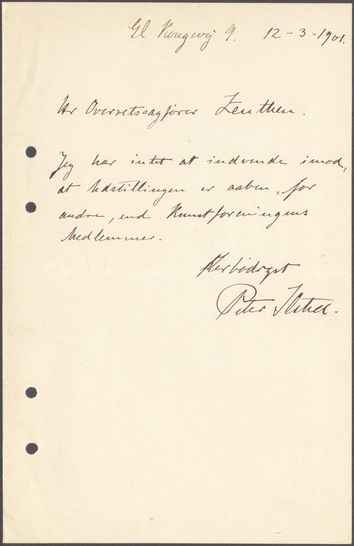 Gl Kongevej 9. 12-3-1901.
Hr Overretssagfører Zeuthen.
Jeg har intet at indvende imod,
at Udstillingen er aaben for
andre, end Kunstforeningens
Medlemmer.
Ærbødigst
Peter Ilsted.